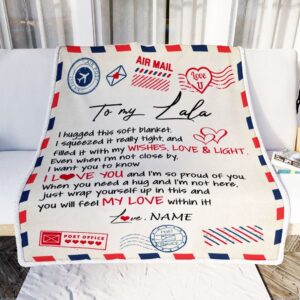 AIR MAIL
LOVE U
To my Lala
I hugged this soft blanket.
I squeezed it really tight, and
Filled it with my WISHES, LOVE & LIGHT.
Even when i'm not close by,
I want you to know
I L VE YOU and i'm so proud of you.
When you need a hug and I'm not here,
just wrap yourself up in this and
you will feel MY LOVE within it!
Love, NAME
POST OFFICE